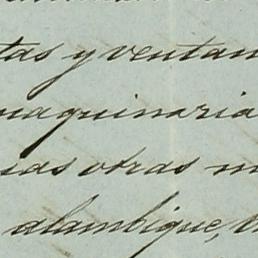 tas y ventan
maquinaria
ias otras m
alambique,